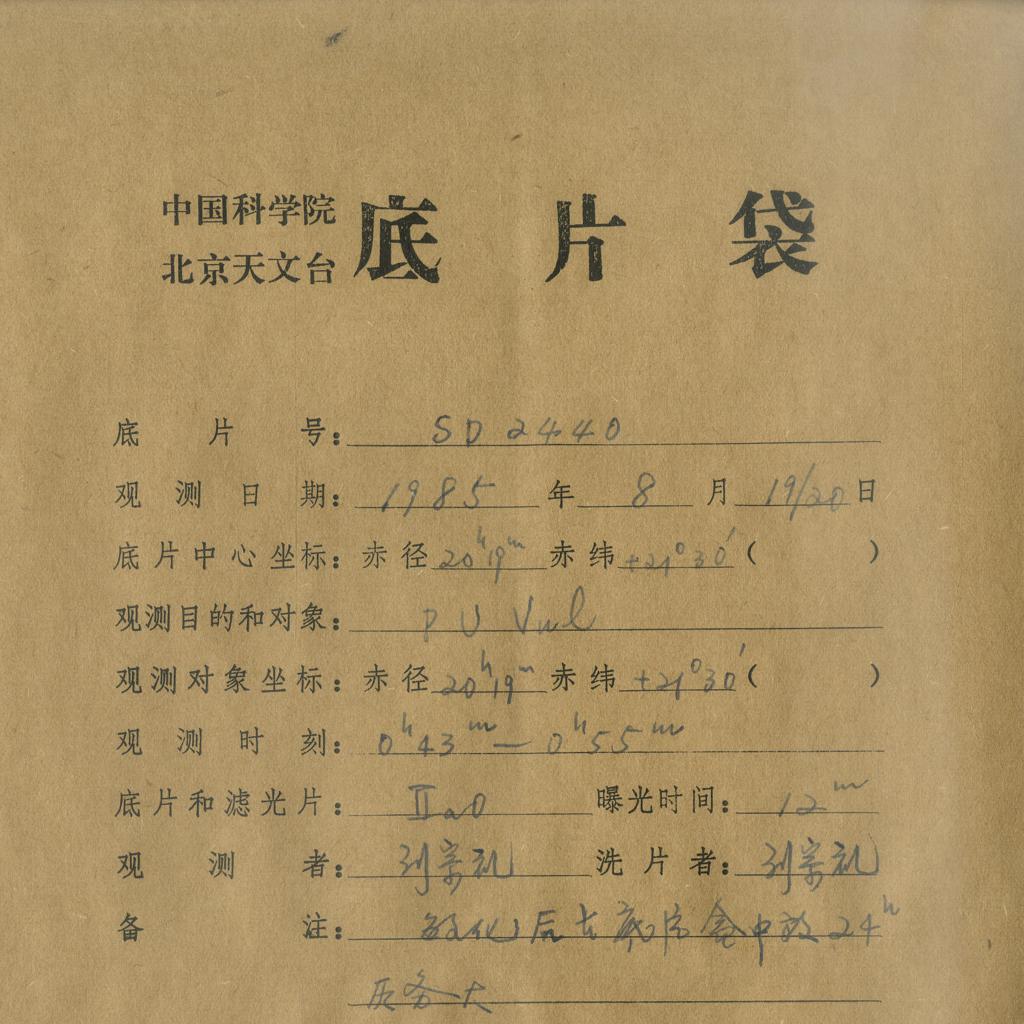 中国科学院
北京天文台 底片袋
底片号： SD 2440
观测日期： 1985 年 8 月 19/20 日
底片中心坐标：赤径 20h19m 赤纬 +21°30′ ( )
观测目的和对象： PU Vul
观测对象坐标：赤径 20h19m 赤纬 +21°30′ ( )
观测时刻： 0h43m — 0h55m
底片和滤光片： IIaO 曝光时间： 12m
观测者： 刘宗礼 洗片者： 刘宗礼
备注： 敏化后在底片盒中放 24h